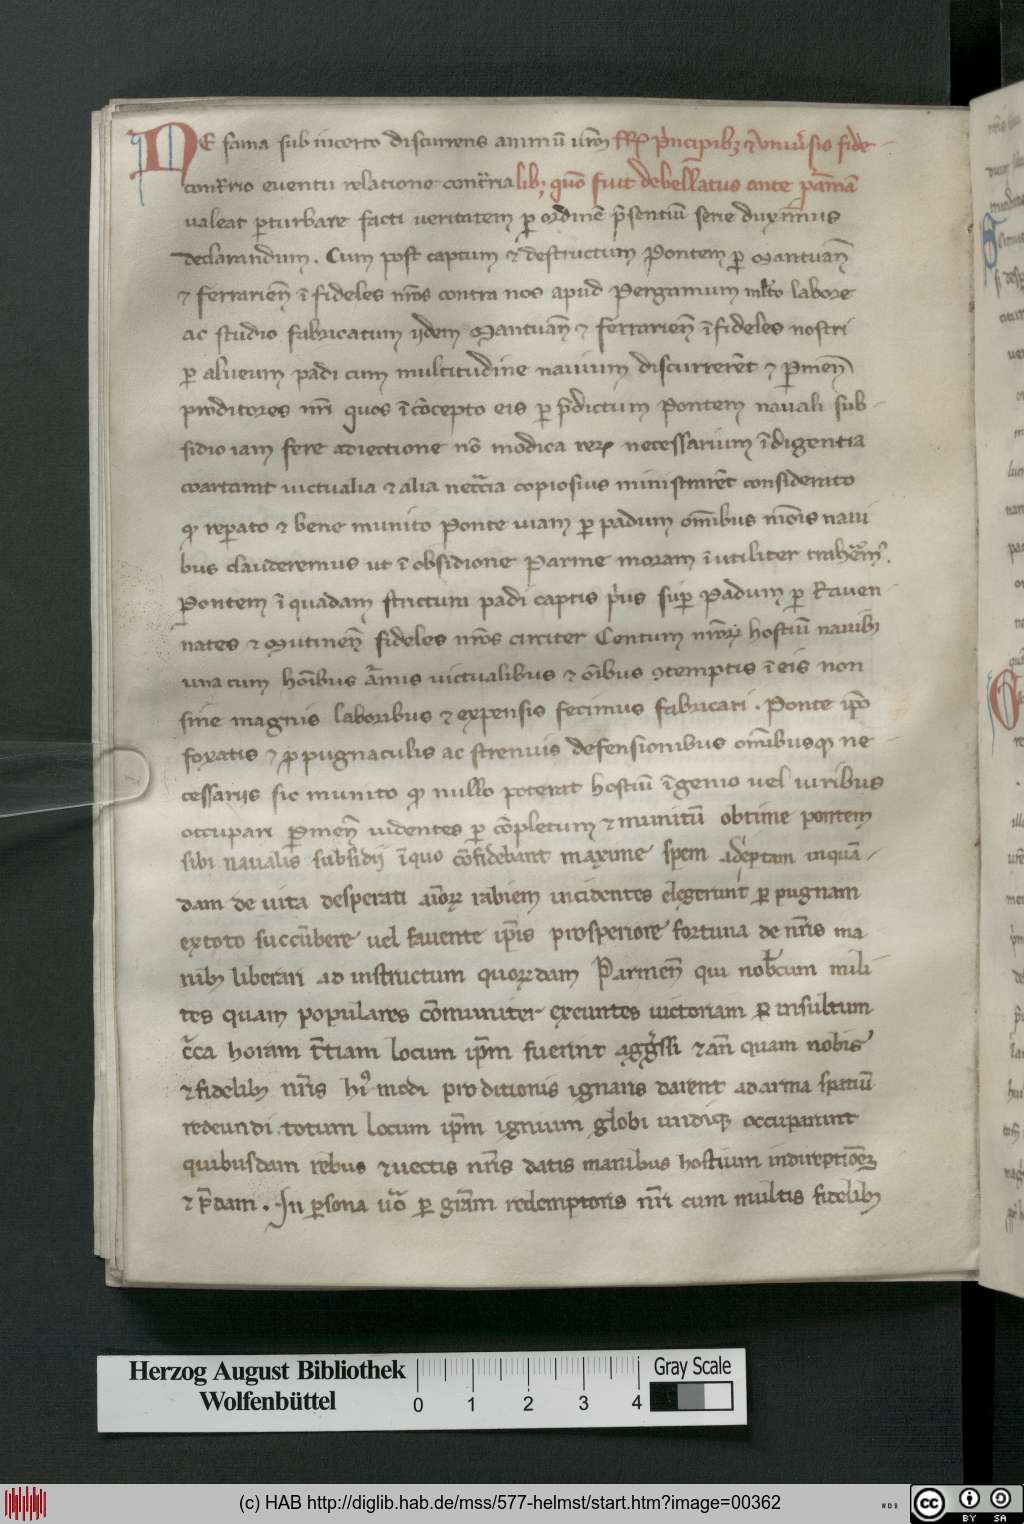 NE fama sub incerto discurrens animū ur̄m FR. p̄ncipibꝫ ⁊ vniūsis fide
cont̄rio euentu relatione cont̄ria libꝫ quō fuit debellatus ante p̄amā
ualeat ꝑturbare facti ueritatem ꝑ ordinē p̄sentiū serie duxim̄us
declarandum. Cum post captum ⁊ destructum Pontem ꝑ Mantuan̄
⁊ ferrarien̄ īfideles nr̄os contra nos apud Pergamum mĺto labore
ac studio fabricatum ijdem Mantuan̄ ⁊ ferrarien̄ īfideles nostri
ꝑ alueum padi cum multitudine nauium discurrerēt ⁊ Parmen̄
proditores nr̄i quos ī cōcepto eis ꝑ p̄dictum Pontem nauali sub
sidio iam fere adiectione nō modica reꝝ necessarium īdigentia
coartarat uictualia ⁊ alia necc̄ia copiosius ministrarēt considerato
ꝙ reparato ⁊ bene munito Ponte uiam ꝑ padum om̄ibus m̄ois naui
bus clauderemus ut ī obsidione Parme moram īutiliter trahēm̄.
Pontem ī quadam strictum padi captis p̄us suꝑ Padum ꝑ Rauen
nates ⁊ Mutinen̄ fideles nr̄os circiter Centum nr̄oꝝ hostiū nauibꝫ
una cum hoībus armis uictualibus ⁊ oībus ꝯtemptis ī eis non
sine magnis laboribus ⁊ expensis fecimus fabricari. Ponte ip̄o
foxatis ⁊ ꝓpugnaculis ac strenuis defensionibus om̄ibusꝙ ne
cessariis sic munito ꝙ nullo poterat hostiū īgenio uel uiribus
occupari Parmen̄ uidentes ꝑ cōpletum ⁊ munitū obtime pontem
sibi naualis subsidij īquo cōfidebant maxime spem ademptam inquā
dam de uita desperati aīoꝝ rabiem incidentes elegerunt ꝑ pugnam
ex toto succūbere uel fauente ip̄is prosperiore fortuna de nr̄is ma
nibꝫ liberari ad instructum quorꝝdam Parmen̄ qui nobc̄um mili
tes quam populares cōmuniter exeuntes uictoriam ꝑ insultum
c̄ca horam t̄tiam locum ip̄m fuerint agḡssi ⁊ an̄ quam nobis
⁊ fidelibꝫ nr̄is hiꝰ modi proditionis ignaris darent ad arma spatiū
redeundi. totum locum ip̄m ignium globi undiqꝫ occuparunt
quibusdam rebus ⁊ uectis nr̄is datis manibus hostium in direptiōeꝫ
⁊ p̄dam. In ꝑsona ūo ꝑ gr̄am redemptoris nr̄i cum multis fidelibꝫ
Herzog August Bibliothek
Wolfenbüttel
0 1 2 3 4
Gray Scale
(c) HAB http://diglib.hab.de/mss/577-helmst/start.htm?image=00362
WDB
cc
BY SA